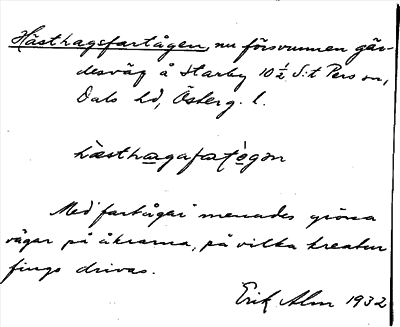 Hästhagsfartågen, nu försvunnen gär-
desväg å Starby 10 ½ S:t Pers sn,
Dals hd, Österg. l.
hästhagafartó̀gən
Med fartågar menades gröna
vägar på åkrarna, på vilka kreatur
fingo drivas.
Erik Alm 1932